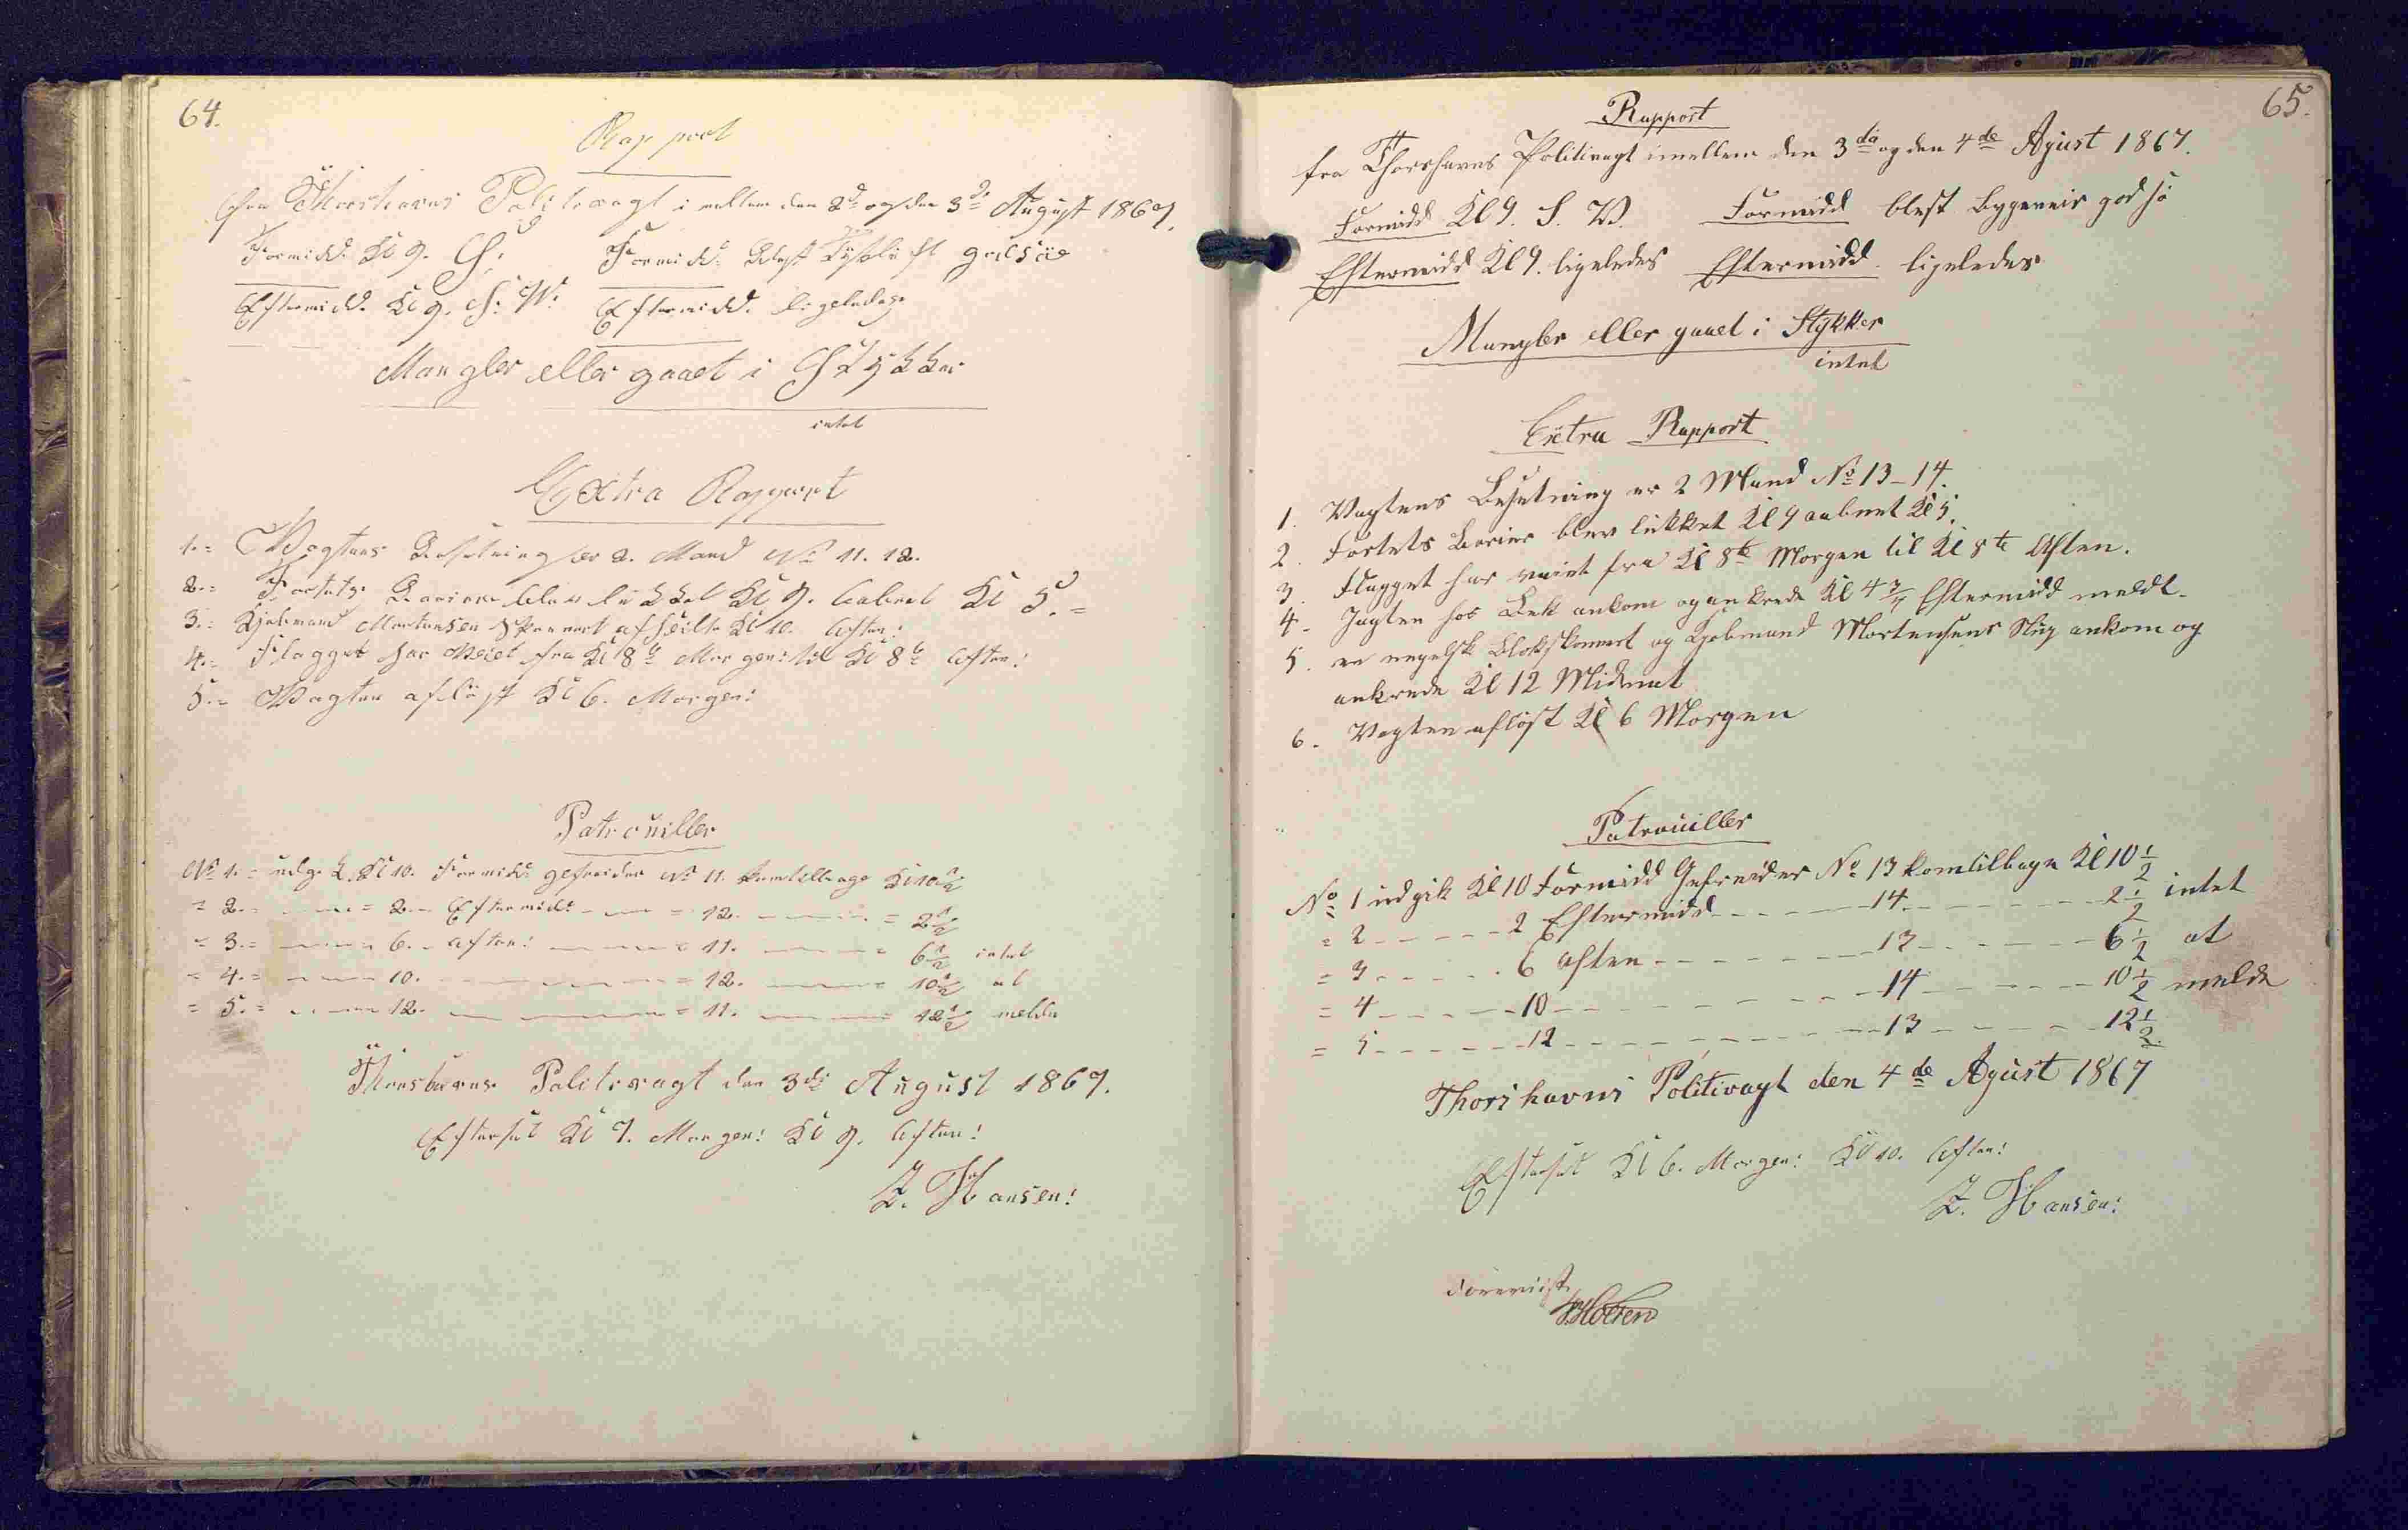 64.
Rapport
fra Thorshavns Politivagt imellem den 2d og den 3d August 1867.
Formidd. Kl 9. S. Formidd. blæst godsöe
Eftermidd. Kl 9. S: W: Eftermidd. ligeledes
Mangler eller gaaet i Stykker
intet
Extra Rapport
1.= Vagtens Besetning er 2. Mand No 11. 12.
2.= Fortets Bariere blev lükket Kl 9. aabnet Kl 5.=
3.= Kjøbmand Mortensen Skonnert afseilte Kl 10. Aften:
4.= Flagget har veiet fra Kl 8te Morgen: til Kl 8te Aften:
5.= Vagten aflöst Kl 6. Morgen:
Patrouiller
No 1.= udgik Kl 10. Formidd: gefreider No 11. komtilbage Kl 10 1/2
= 2.= 2. Eftermidd: = 12. = 2 1/2
= 3.= 6. Aften: = 11. = 6 1/2 intet
= 4.= 10. = 12. = 10 1/2 at
= 5.= 12. = 11. = 12 1/2 melde
Thorshavns Politivagt den 3de August 1867.
Efterset Kl 7. Morgen: Kl 9. Aften:
Z. Hansen:
65.
Rapport
fra Thorshavns Politivagt imellem den 3de og den 4de Agüst 1867.
Formidd Kl 9. S. W. Formidd blest Bygeveir god sö
Eftermidd Kl 9. ligeledes Eftermidd. ligeledes
Mangler eller gaaet i Stykker
intet
Extra Rapport
1. Vagtens Besetning er 2 Mand No 13-14.
2. Fortets Barier blev lükket Kl 9 aabnet Kl 5.
3. Flagget har veiet fra Kl 8te Morgen til Kl 8te Aften.
4. Jagten hos Bek ankom og ankrede Kl 4 3/4 Eftermidd meldt.
5. en engelsk Blokskonnert og Kjøbmand Mortensens Slup ankom og
ankrede Kl 12 Midnat
6. Vagten aflöst Kl 6 Morgen
Patrouiller
No 1 udgik Kl 10 Formidd Gefreider No 13 komtilbage Kl 10 1/2
= 2 - - - - - 2 Eftermidd - - - - 14 - - - - - - 2 1/2 intet
= 3 - - - - - 6 Aften - - - - - - 13 - - - - - - 6 1/2 at
= 4 - - - - - 10 - - - - - - 14 - - - - - 10 1/2 melde
= 5 - - - - - 12 - - - - - - 13 - - - - - 12 1/2.
Thorshavns Politivagt den 4de Agüst 1867
Efterset Kl 6. Morgen: Kl 10. Aften:
Z. Hansen:
Forevüst